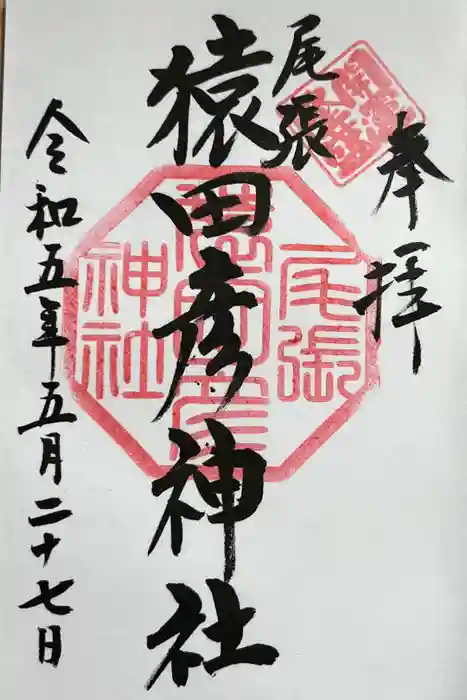 奉拝
尾張
猿田彦神社
令和五年五月二十七日
尾張
神社